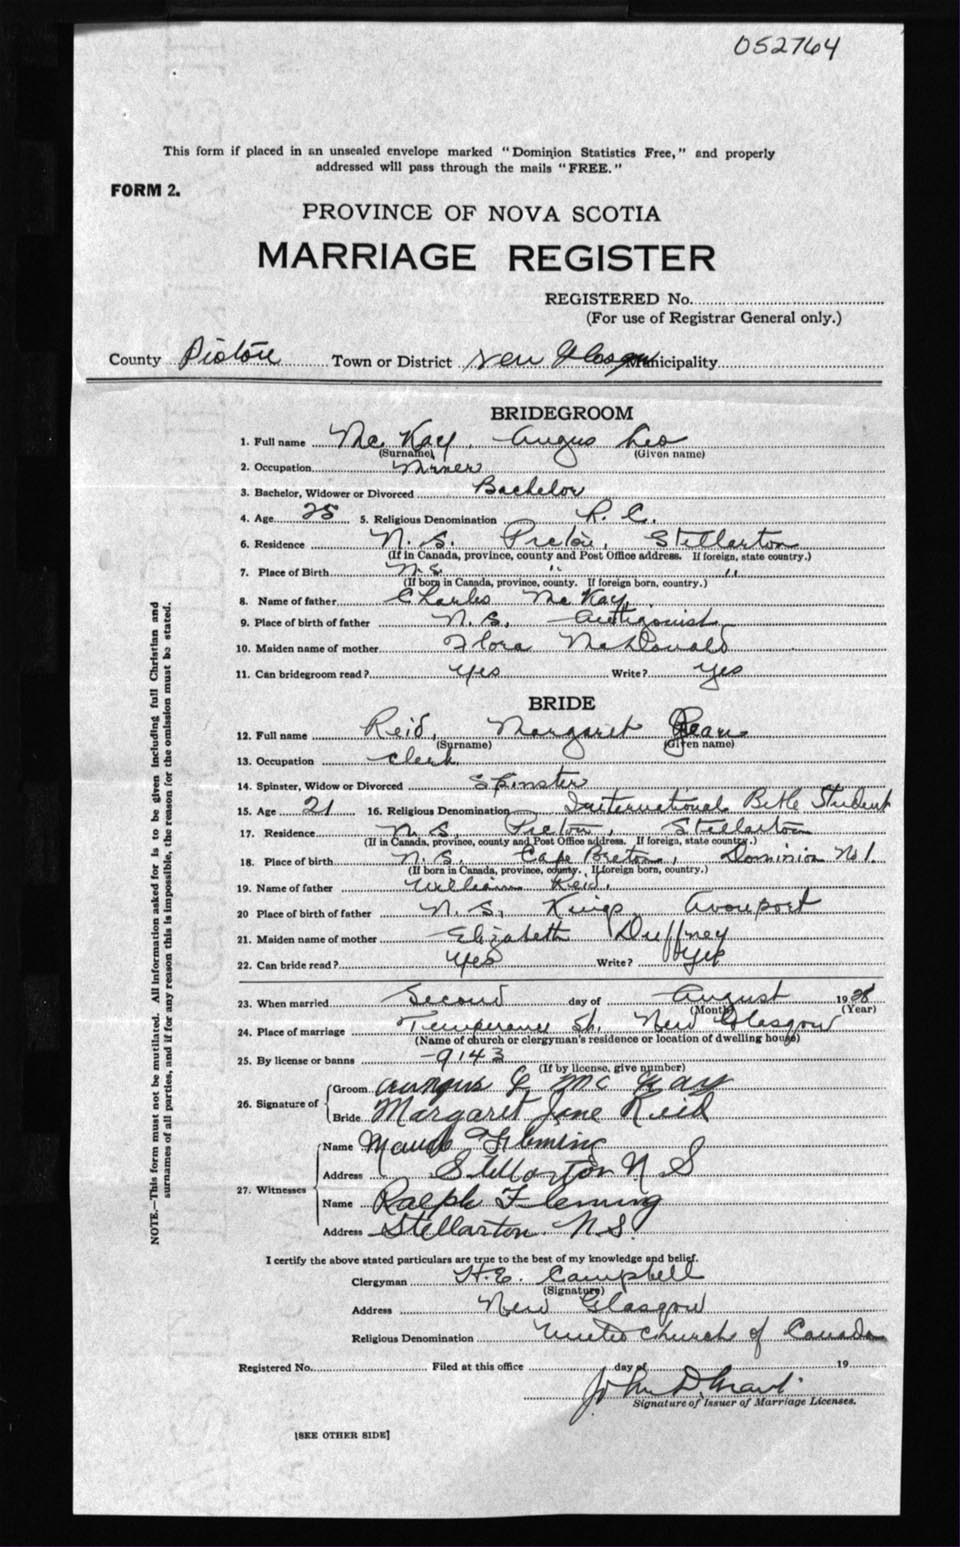 052764
This form if placed in an unsealed envelope marked "Dominion Statistics Free," and properly
addressed will pass through the mails "FREE."
FORM 2.
PROVINCE OF NOVA SCOTIA
MARRIAGE REGISTER
REGISTERED No.
(For use of Registrar General only.)
County Pictou Town or District New Glasgow Municipality
BRIDEGROOM
1. Full name McKay, Angus Leo
(Surname) (Given name)
2. Occupation Miner
3. Bachelor, Widower or Divorced Bachelor
4. Age 25 5. Religious Denomination R. C.
6. Residence N. S. Pictou, Stellarton
(If in Canada, province, county and Post Office address. If foreign, state country.)
7. Place of Birth N. S. " "
(If born in Canada, province, county. If foreign born, country.)
8. Name of father Charles McKay
9. Place of birth of father N. S. Antigonish
10. Maiden name of mother Flora McDonald
11. Can bridegroom read? Yes Write? Yes
BRIDE
12. Full name Reid, Margaret Jean
(Surname) (Given name)
13. Occupation Clerk
14. Spinster, Widow or Divorced Spinster
15. Age 21 16. Religious Denomination International Bible Student
17. Residence N. S. Pictou, Stellarton
(If in Canada, province, county and Post Office address. If foreign, state country.)
18. Place of birth N. S. Cape Breton, Dominion No 1.
(If born in Canada, province, county. If foreign born, country.)
19. Name of father William Reid.
20 Place of birth of father N. S. Kings Avonport
21. Maiden name of mother Elizabeth Duffney
22. Can bride read? Yes Write? Yes
23. When married Second day of August 1928
(Month) (Year)
24. Place of marriage Temperance St. New Glasgow
(Name of church or clergyman's residence or location of dwelling house)
25. By license or banns 9143
(If by license, give number)
26. Signature of Groom Aungus L McKay
Bride Margaret Jane Reid
27. Witnesses Name Maude Fleming
Address Stellarton N S
Name Ralph Fleming
Address Stellarton N.S.
I certify the above stated particulars are true to the best of my knowledge and belief.
Clergyman H. E. Campbell
(Signature)
Address New Glasgow
Religious Denomination United Church of Canada
Registered No. Filed at this office day of 19
John D Grant
Signature of Issuer of Marriage Licenses.
[SEE OTHER SIDE]
NOTE.—This form must not be mutilated. All information asked for is to be given including full Christian and
surnames of all parties, and if for any reason this is impossible, the reason for the omission must be stated.